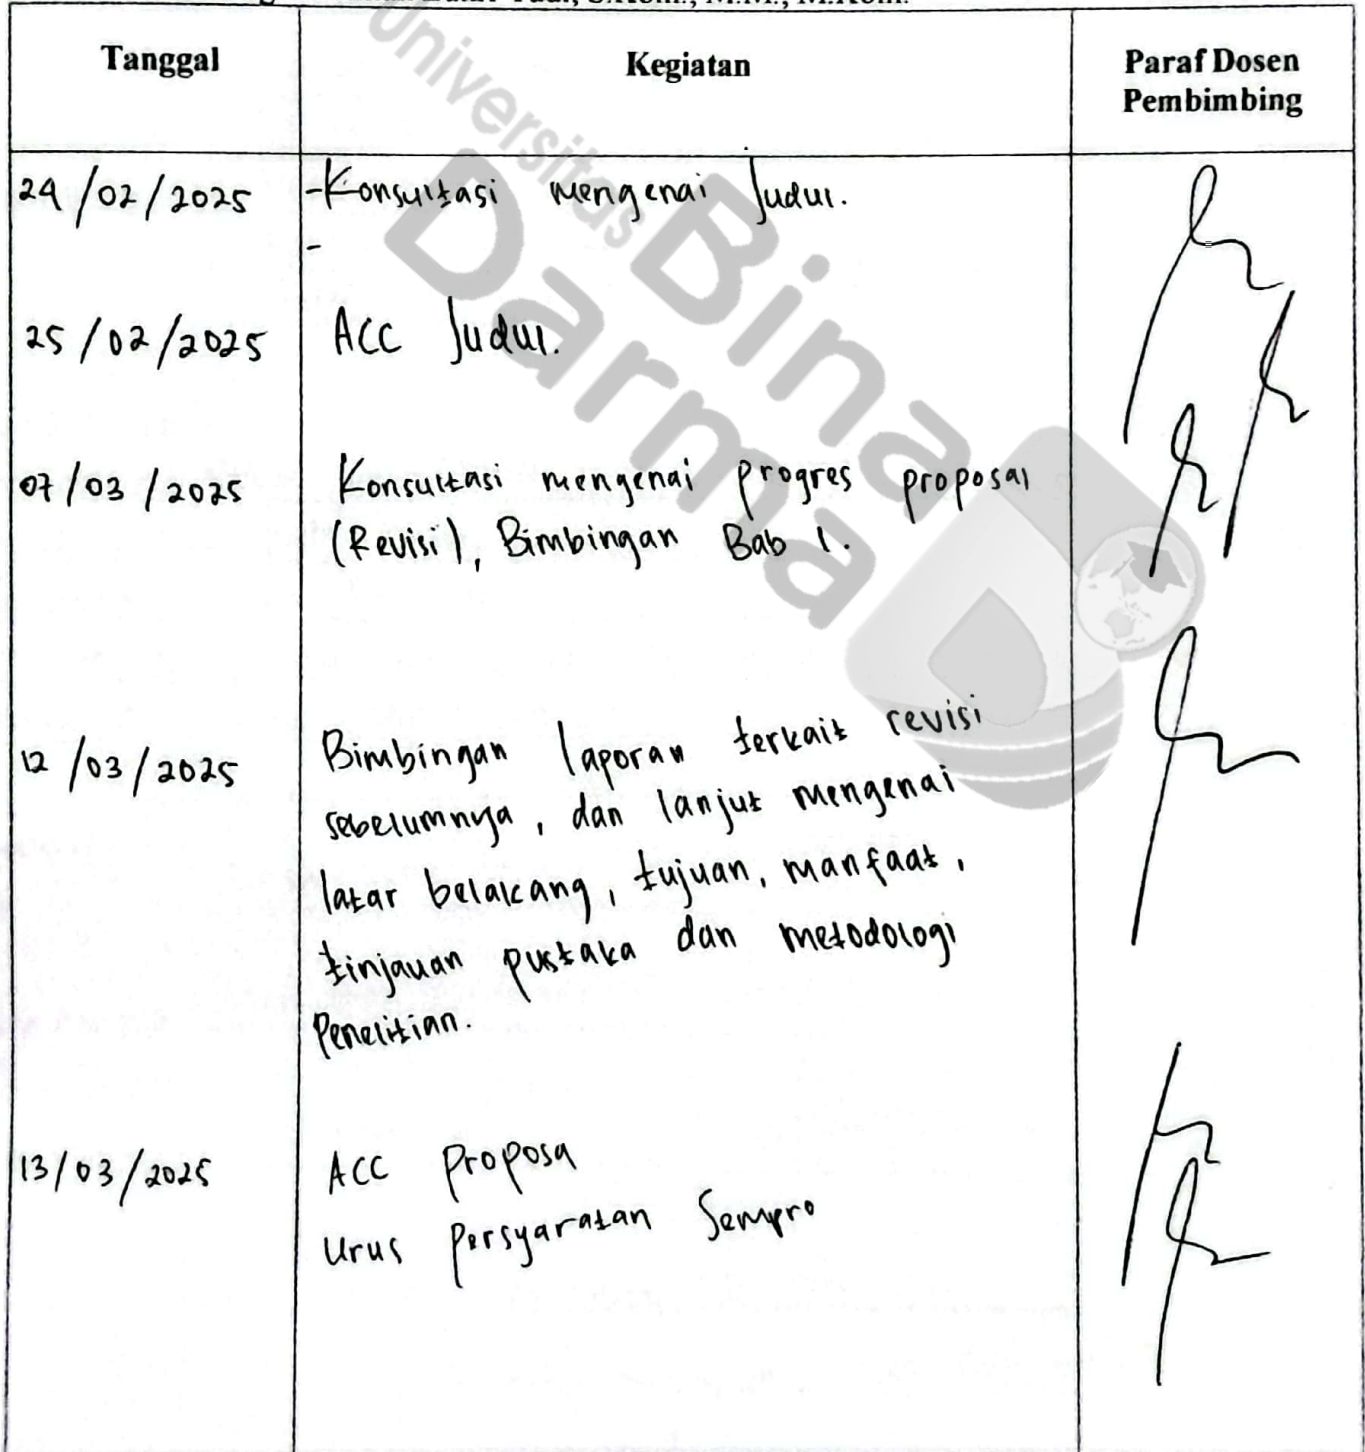 S.Kom., M.M., M.Kom.
Tanggal Kegiatan Paraf Dosen
Pembimbing
Universitas
Bina
Darma
24/02/2025 -Konsultasi mengenai Judul.
-
25/02/2025 ACC Judul.
07/03/2025 Konsultasi mengenai progres proposal
(Revisi), Bimbingan Bab 1.
12/03/2025 Bimbingan laporan terkait revisi
sebelumnya, dan lanjut mengenai
latar belakang, tujuan, manfaat,
tinjauan pustaka dan metodologi
Penelitian.
13/03/2025 ACC Proposa
Urus Persyaratan Sempro